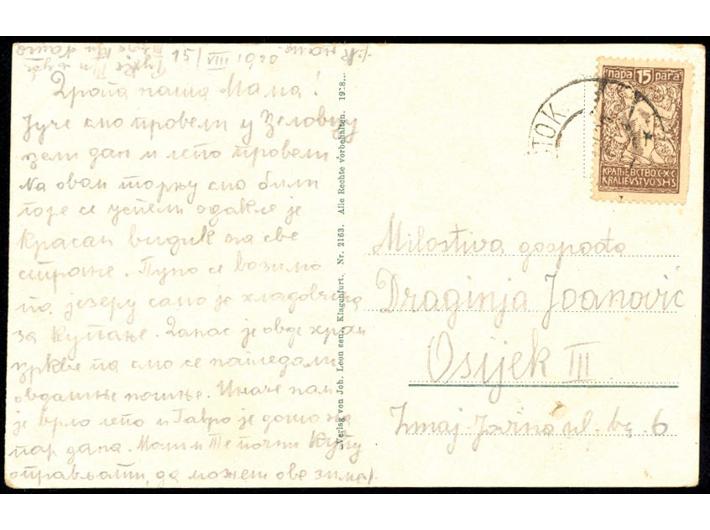 15/VIII 1920
Драга наша Мама!
Јуче смо провели у Целовцу
цели дан и лепо провели.
На овом торњу смо били
горе се успели одакле је
красан видик на све
стране. Пуно се возимо
по језеру само је хладовина
за купање. Данас је овде храм
цркве па смо се нагледали
овдашње ношње. Иначе нам
је врло лепо и Гавро је дошо на
пар дана. Молим Те почни кућу
оправљати, да можеш ове зиме
Verlag von Joh. Leon sen., Klagenfurt. Nr. 2163. Alle Rechte vorbehalten. 1918.
пара 15 para
КРАЉЕВСТВО С·Х·С
KRALJEVSTVO SHS
TOK
Milostiva gospođa
Draginja Joanović
Osijek III
Zmaj Jovina ul. br. 6